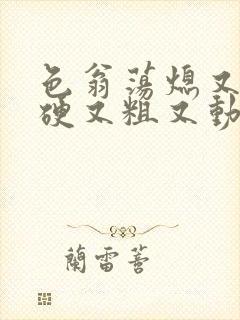 色翁荡熄又
硬又粗又動
蘭雷蓍